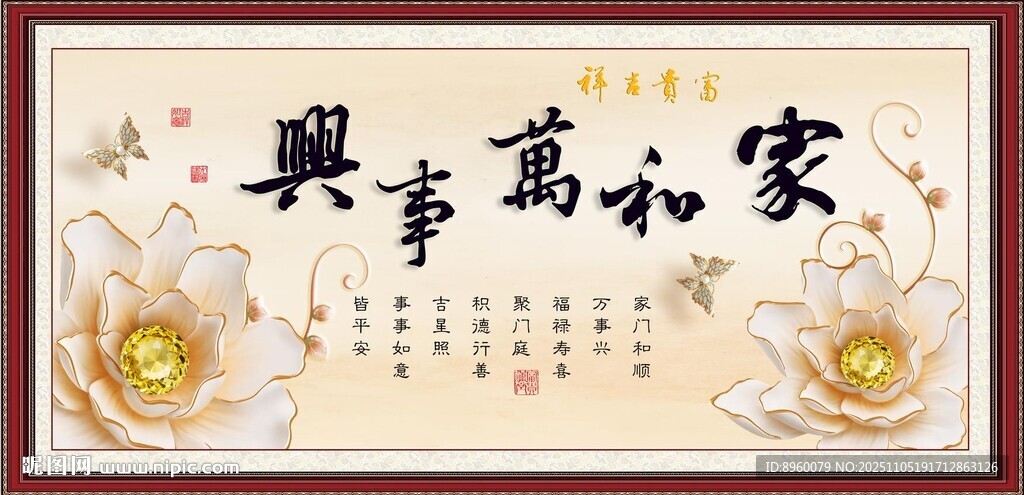 富貴吉祥
家和萬事興
家门和顺
万事兴
福禄寿喜
聚门庭
积德行善
吉星照
事事如意
皆平安
昵图网 www.nipic.com
ID:8960079 NO:20251105191712863126